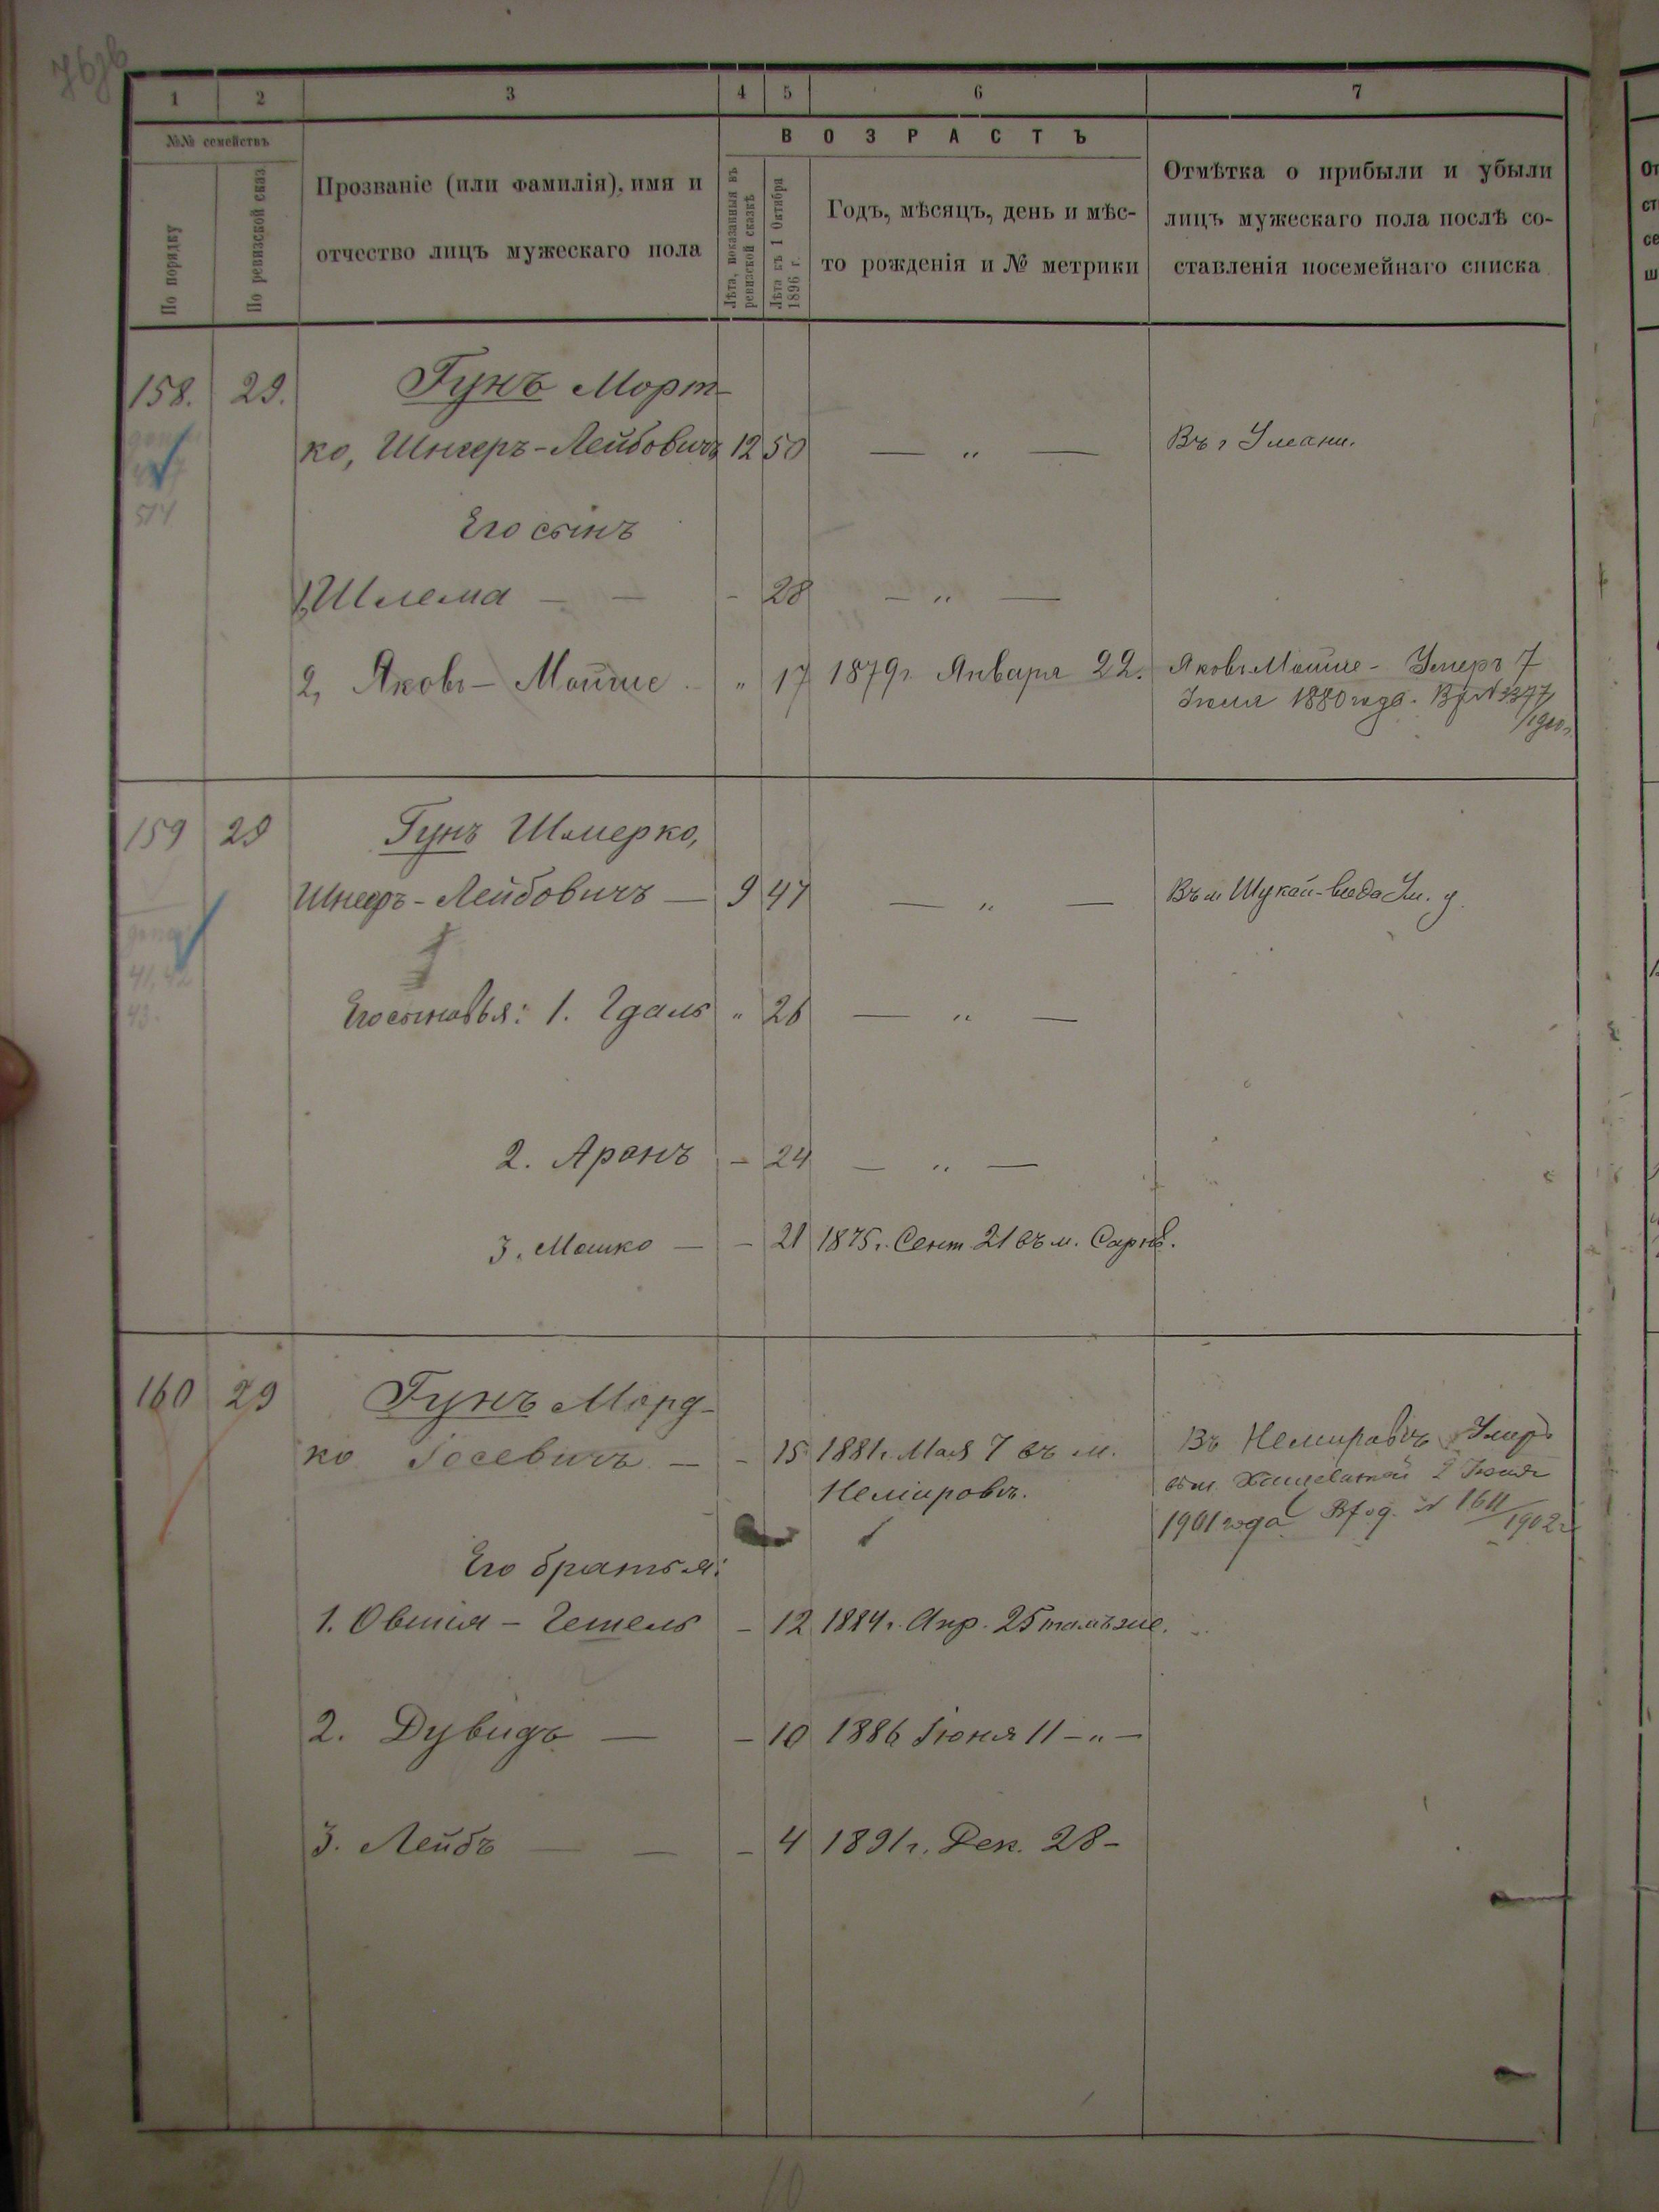 1 2 3 4 5 6 7
№№ семействъ
По порядку
По ревизской сказ.
Прозваніе (или фамилія), имя и
отчество лицъ мужескаго пола
ВОЗРАСТЪ
Лѣта, показанныя въ
ревизской сказкѣ
Лѣта къ 1 Октября
1896 г.
Годъ, мѣсяцъ, день и мѣс-
то рожденія и № метрики
Отмѣтка о прибыли и убыли
лицъ мужескаго пола послѣ со-
ставленія посемейнаго списка
158. 29. Гунъ Морт-
ко, Шнееръ-Лейбовичъ 12 50 — " — Въ г Умани.
514
Его сынъ
1, Шлема — — - 28 — " —
2, Яковъ-Мойше - " 17 1879 г. Января 22. Яковъ Мойше - Умеръ 7
Іюля 1880 года.
159 29 Гунъ Шмерко,
Шнееръ-Лейбовичъ — 9 47 — " — Въ м Шукай-вода Ум. у.
41, 42
43.
Его сыновья: 1. Гдаль " 26 — " —
2. Аронъ - 24 — " —
3. Мошко — - 21 1875 г. Сент. 21 въ м. Сарнѣ.
160 29 Гунъ Морд-
ко Іосевичъ — - 15 1881 г. Мая 7 въ м. Въ Немировѣ Умеръ
Немировѣ. въ м. Хащеватой 2 Іюня
1901 года № 1611/1902 г
Его братья:
1. Овшія - Гешель - 12 1884 г. Апр. 25 тамъ же.
2. Дувидъ — - 10 1886 Іюня 11 — " —
3. Лейбъ — — - 4 1891 г. Дек. 28 -